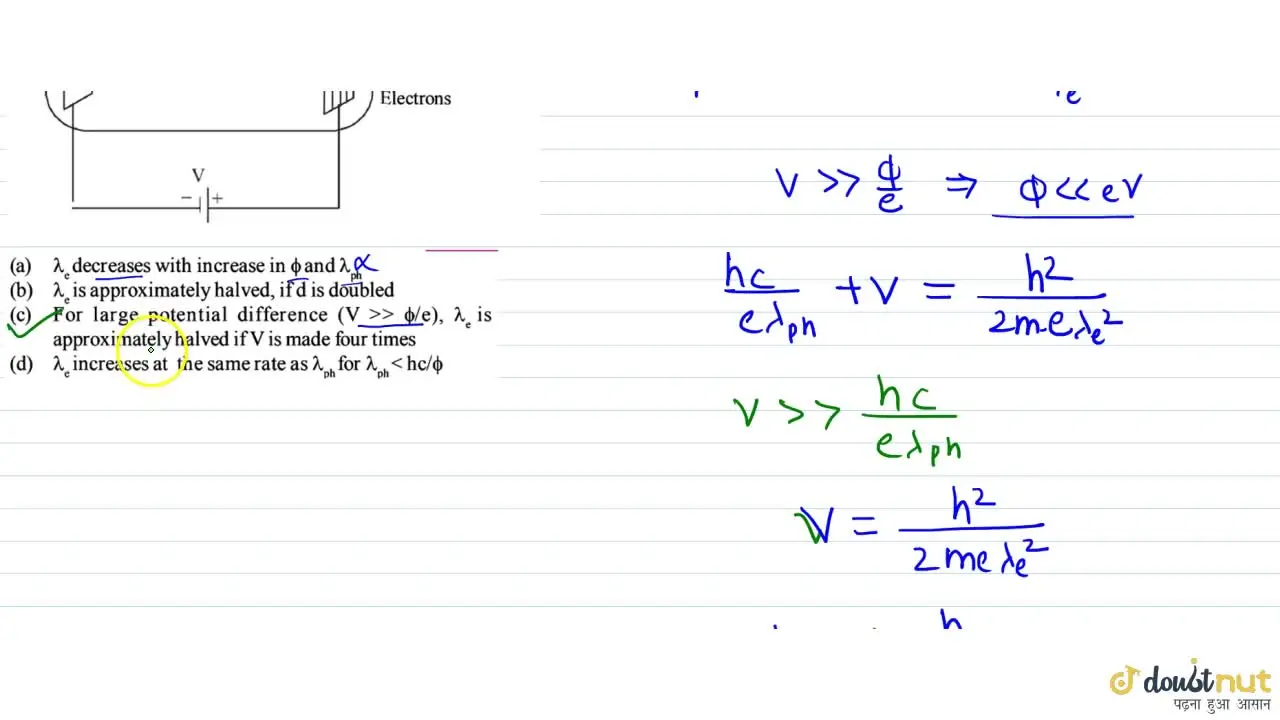 Electrons
V
− +
(a) λe decreases with increase in ϕ and λph α
(b) λe is approximately halved, if d is doubled
(c) For large potential difference (V >> ϕ/e), λe is
approximately halved if V is made four times
(d) λe increases at the same rate as λph for λph < hc/ϕ
V >> ϕ/e ⇒ ϕ << eV
hc/eλph + V = h²/2meλe²
V >> hc/eλph
V = h²/2meλe²
h
doubtnut
पढ़ना हुआ आसान